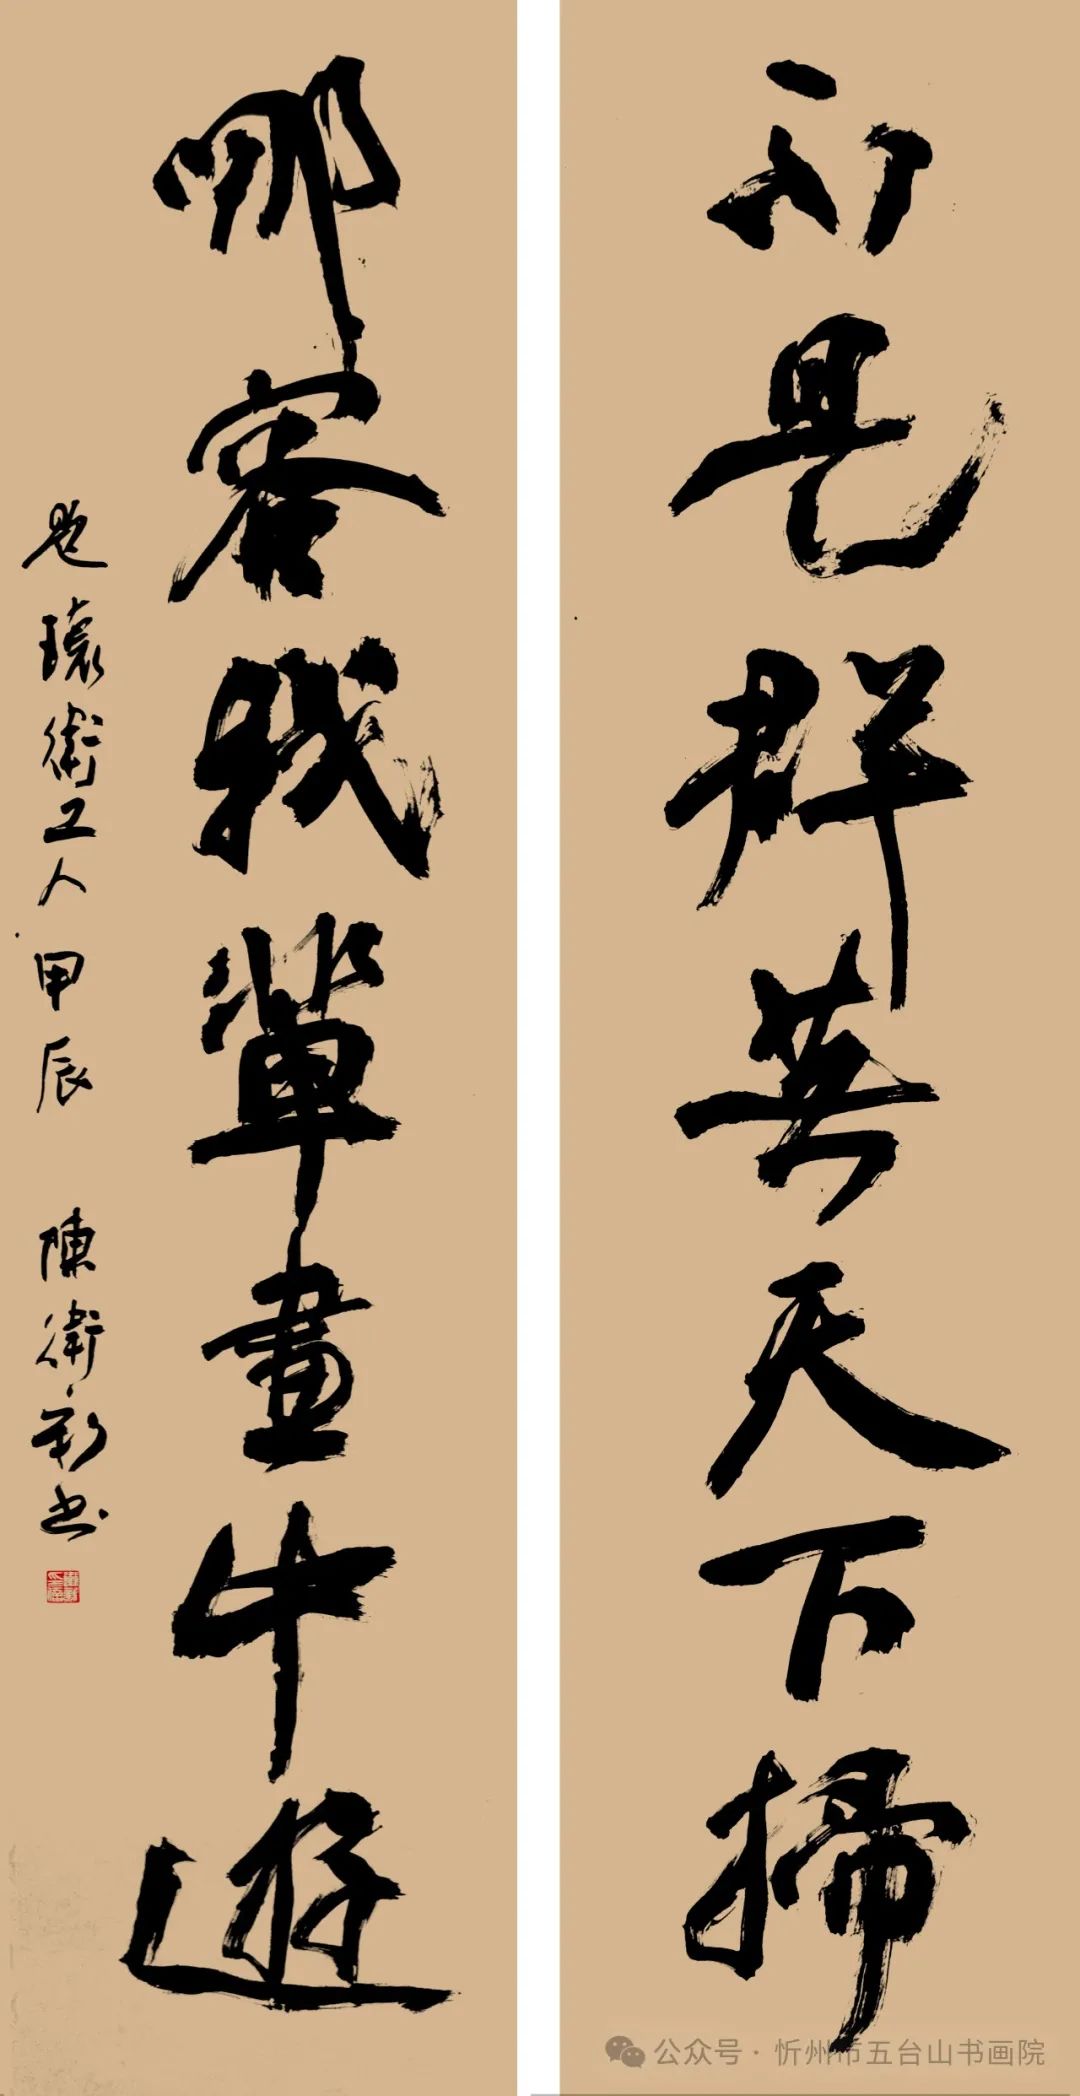 不是群英天下掃
哪容我輩畫中遊
題環衛工人 甲辰 陳衛新書
公众号·忻州市五台山书画院